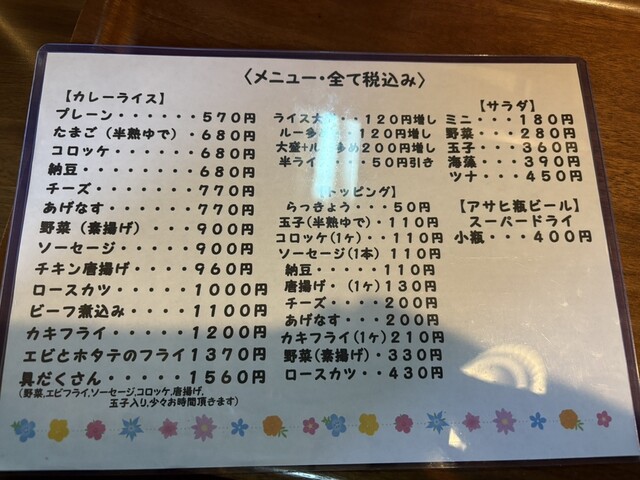 〈メニュー・全て税込み〉
【カレーライス】
プレーン・・・・・・570円
たまご（半熟ゆで）・680円
コロッケ・・・・・・680円
納豆・・・・・・・・680円
チーズ・・・・・・・770円
あげなす・・・・・・770円
野菜（素揚げ）・・・900円
ソーセージ・・・・・900円
チキン唐揚げ・・・・960円
ロースカツ・・・・1000円
ビーフ煮込み・・・1100円
カキフライ・・・・1200円
エビとホタテのフライ1370円
具だくさん・・・・1560円
(野菜,エビフライ,ソーセージ,コロッケ,唐揚げ,
玉子入り,少々お時間頂きます)
ライス大・・120円増し
ルー多・・120円増し
大盛+ル 多め200円増し
半ライ・・・50円引き
トッピング】
らっきょう・・・50円
玉子(半熟ゆで)・110円
コロッケ(1ヶ)・・110円
ソーセージ(1本) 110円
納豆・・・・110円
唐揚げ・(1ヶ)130円
チーズ・・・200円
あげなす・・・200円
カキフライ(1ヶ)210円
野菜(素揚げ)・330円
ロースカツ・・430円
【サラダ】
ミニ・・・180円
野菜・・・280円
玉子・・・360円
海藻・・・390円
ツナ・・・450円
【アサヒ瓶ビール】
スーパードライ
小瓶・・・400円